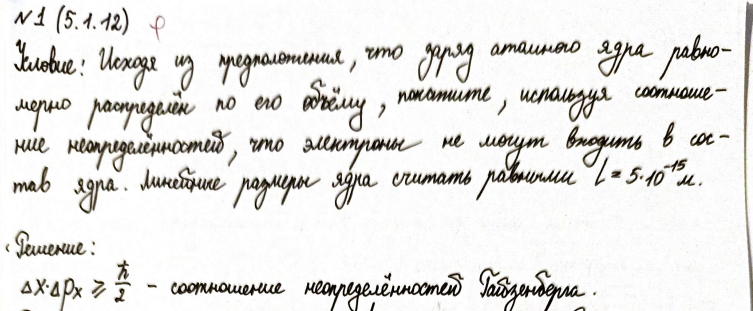 N1 (5.1.12) φ
Условие: Исходя из предположения, что заряд атомного ядра равно-
мерно распределён по его объёму, покажите, используя соотноше-
ние неопределённостей, что электроны не могут входить в сос-
тав ядра. Линейные размеры ядра считать равными l = 5·10⁻¹⁵ м.
Решение:
Δx·Δpₓ ⩾ ℏ/2 – соотношение неопределённостей Гайзенберга.